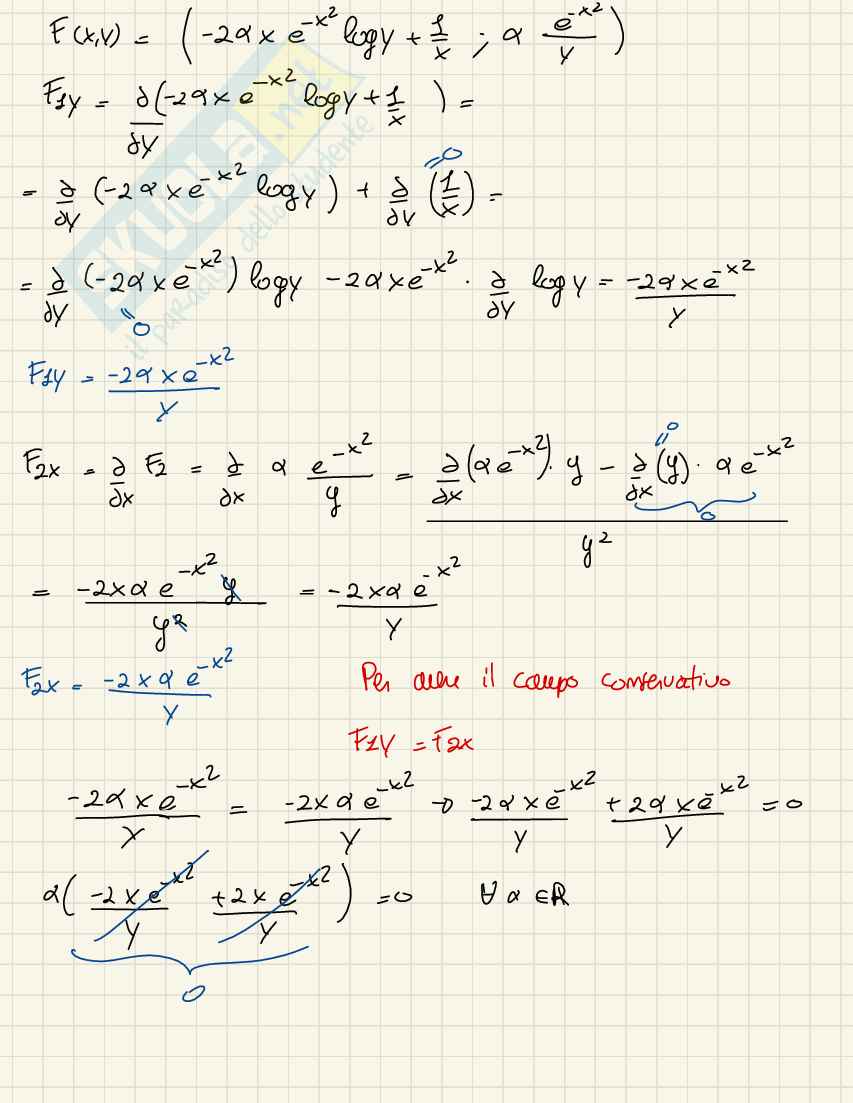 F(x,y) = (-2αx e^{-x²} log y + 1/x ; α e^{-x²}/y)
F1y = ∂/∂y (-2αx e^{-x²} log y + 1/x) =
= ∂/∂y (-2αx e^{-x²} log y) + ∂/∂y (1/x) = =0
= ∂/∂y (-2αx e^{-x²}) log y - 2αx e^{-x²} · ∂/∂y log y = -2αx e^{-x²}/y
=0
F1y = -2αx e^{-x²}/y
F2x = ∂/∂x F2 = ∂/∂x α e^{-x²}/y = (∂/∂x (α e^{-x²}) · y - ∂/∂x (y) · α e^{-x²})/y² =0 0
= -2xα e^{-x²} y/y² = -2xα e^{-x²}/y
F2x = -2xα e^{-x²}/y Per avere il campo conservativo
F1y = F2x
-2αx e^{-x²}/y = -2xα e^{-x²}/y → -2αx e^{-x²}/y + 2αx e^{-x²}/y = 0
α(-2x e^{-x²}/y + 2x e^{-x²}/y) = 0 ∀ α ∈ ℝ
0
SKUOLA.net
il paradiso dello studente